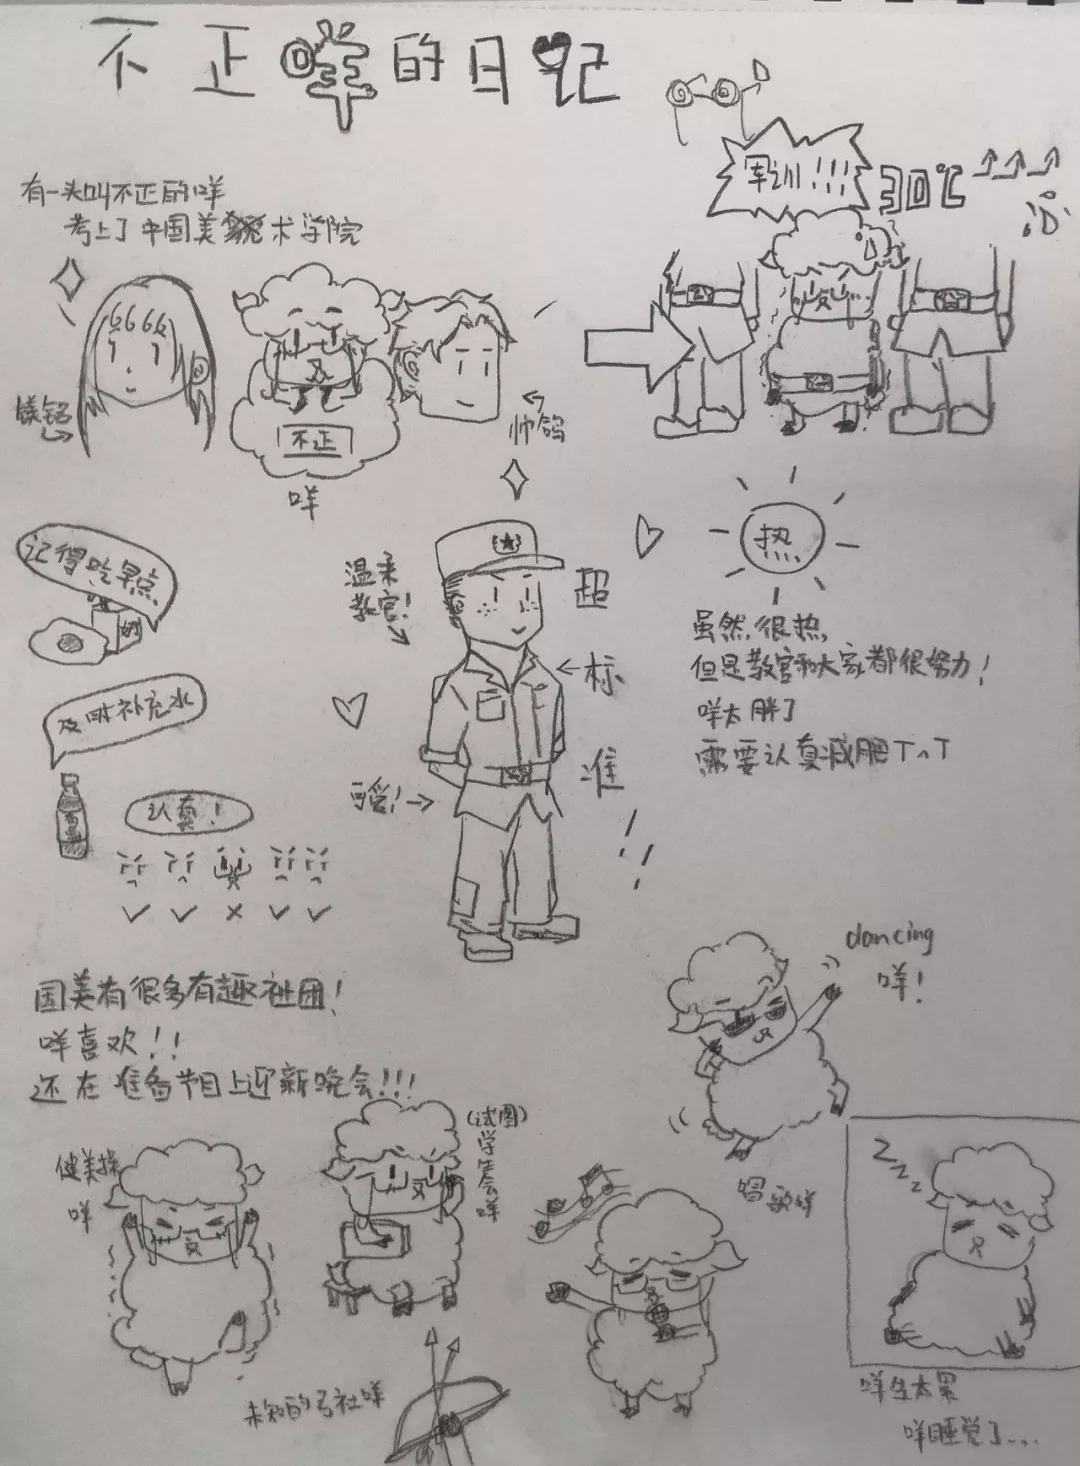 不正咩的日记
有一头叫不正的咩
考上了中国美术学院
军训!!!
30℃
6666
帅鸽
不正
咩
记得吃早点
奶
温柔
教官!
超
标
准
!!
热
虽然很热,
但是教官和大家都很努力!
咩太胖了
需要认真减肥T^T
及时补充水
可爱!
认真!
国美有很多有趣社团!
咩喜欢!!
还在准备节目上迎新晚会!!!
dancing
咩!
健美操
咩
(试图)
学生会咩
唱歌咩
zzz
未知的弓社咩
咩生太累
咩睡觉了...